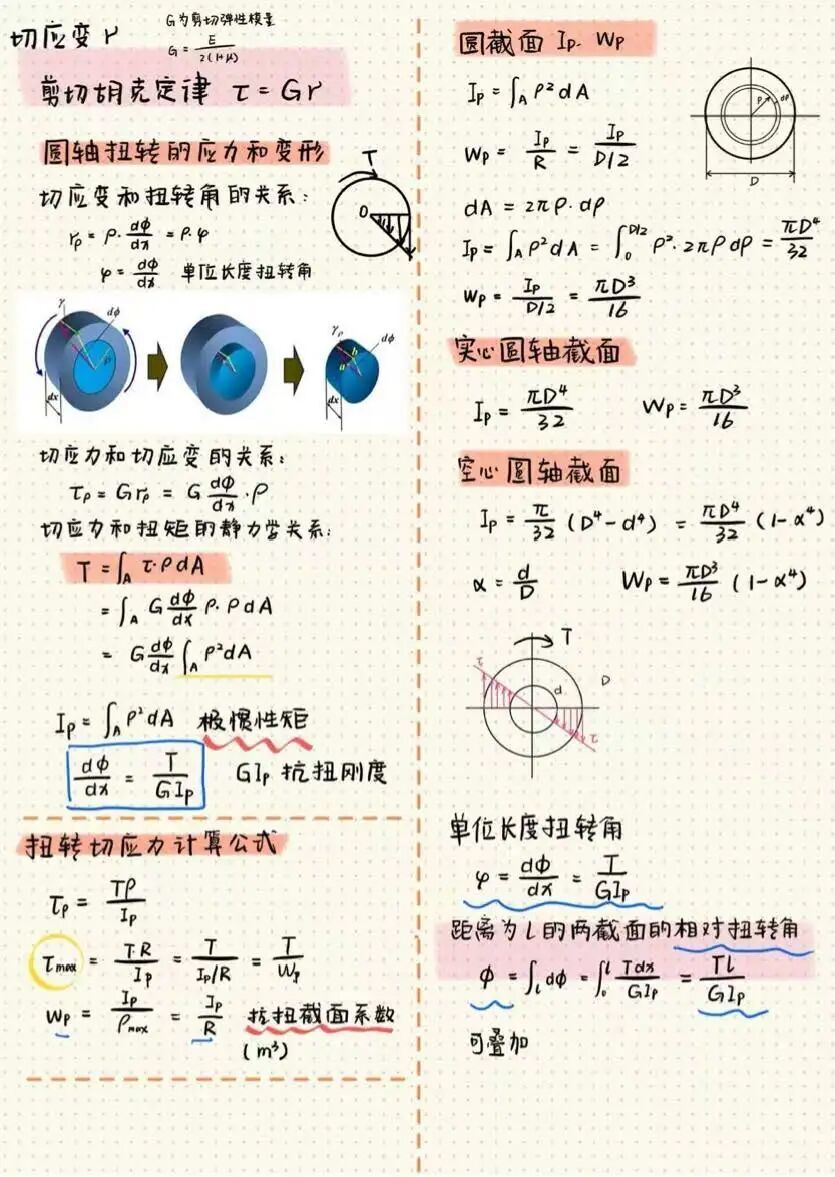 切应变 γ
G为剪切弹性模量
G = E/2(1+μ)
剪切胡克定律 τ = Gγ
圆轴扭转的应力和变形
T
O
切应变和扭转角的关系:
γρ = ρ·dϕ/dx = ρ·φ
φ = dϕ/dx 单位长度扭转角
γ
dϕ
ρ
dx
γρ
dϕ
b
a
dx
切应力和切应变的关系:
τρ = Gγρ = G dϕ/dx ·ρ
切应力和扭矩的静力学关系:
T = ∫A τ·ρdA
= ∫A G dϕ/dx ρ·ρdA
= G dϕ/dx ∫A ρ²dA
Ip = ∫A ρ²dA 极惯性矩
dϕ/dx = T/GIp GIp 抗扭刚度
扭转切应力计算公式
τρ = Tρ/Ip
τmax = T·R/Ip = T/Ip/R = T/Wp
Wp = Ip/ρmax = Ip/R 抗扭截面系数
(m³)
圆截面 Ip. Wp
Ip = ∫A ρ²dA
Wp = Ip/R = Ip/D/2
ρ
dρ
D
dA = 2πρ·dρ
Ip = ∫A ρ²dA = ∫0 D/2 ρ²·2πρdρ = πD⁴/32
Wp = Ip/D/2 = πD³/16
实心圆轴截面
Ip = πD⁴/32 Wp = πD³/16
空心圆轴截面
Ip = π/32 (D⁴-d⁴) = πD⁴/32 (1-α⁴)
α = d/D Wp = πD³/16 (1-α⁴)
T
τ
d
D
τ
单位长度扭转角
φ = dϕ/dx = T/GIp
距离为l的两截面的相对扭转角
ϕ = ∫l dϕ = ∫0 l Tdx/GIp = Tl/GIp
可叠加